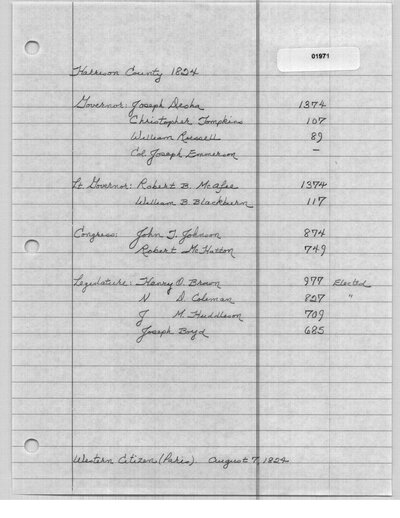 01971
Harrison County 1824
Governor: Joseph Desha 1374
Christopher Tompkins 107
William Russell 89
Col Joseph Emmerson –
Lt Governor: Robert B. McAfee 1374
William B. Blackburn 117
Congress: John T. Johnson 874
Robert McHatton 749
Legislature: Henry O. Brown 977 Elected
N D. Coleman 827 "
J M. Huddleson 709
Joseph Boyd 685
Western Citizen (Paris). August 7, 1824